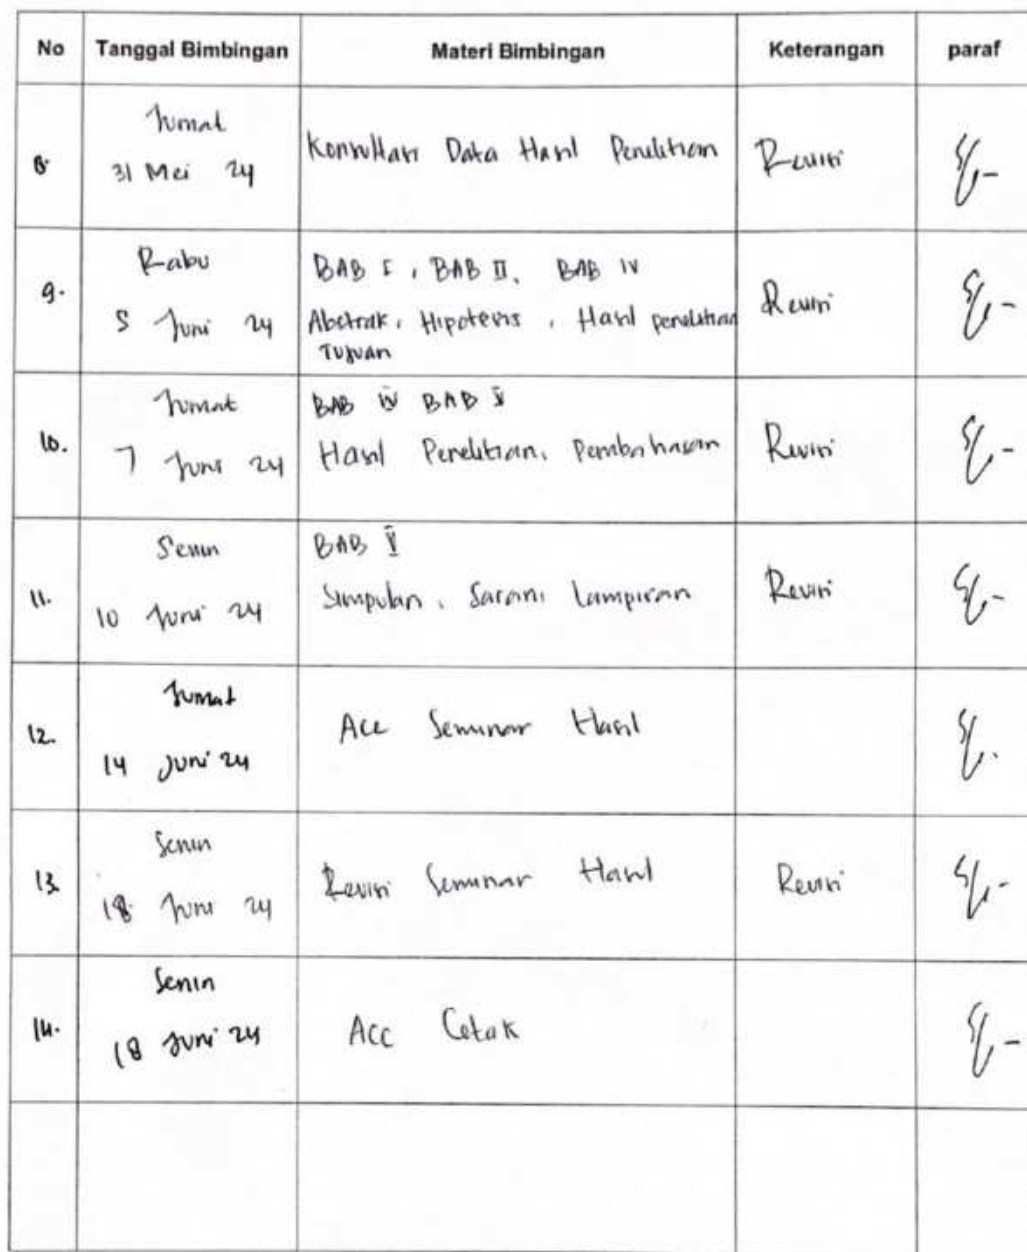 No Tanggal Bimbingan Materi Bimbingan Keterangan paraf
8. Jumat
31 Mei 24 Konsultasi Data Hasil Penelitian Revisi
9. Rabu
5 Juni 24 BAB I, BAB II, BAB IV
Abstrak, Hipotesis, Hasil penelitian Revisi
Tujuan
10. Jumat
7 Juni 24 BAB IV BAB V
Hasil Penelitian, Pembahasan Revisi
11. Senin
10 Juni 24 BAB V
Simpulan, Saran, Lampiran Revisi
12. Jumat
14 Juni 24 Acc Seminar Hasil
13. Senin
18 Juni 24 Revisi Seminar Hasil Revisi
14. Senin
18 Juni 24 Acc Cetak